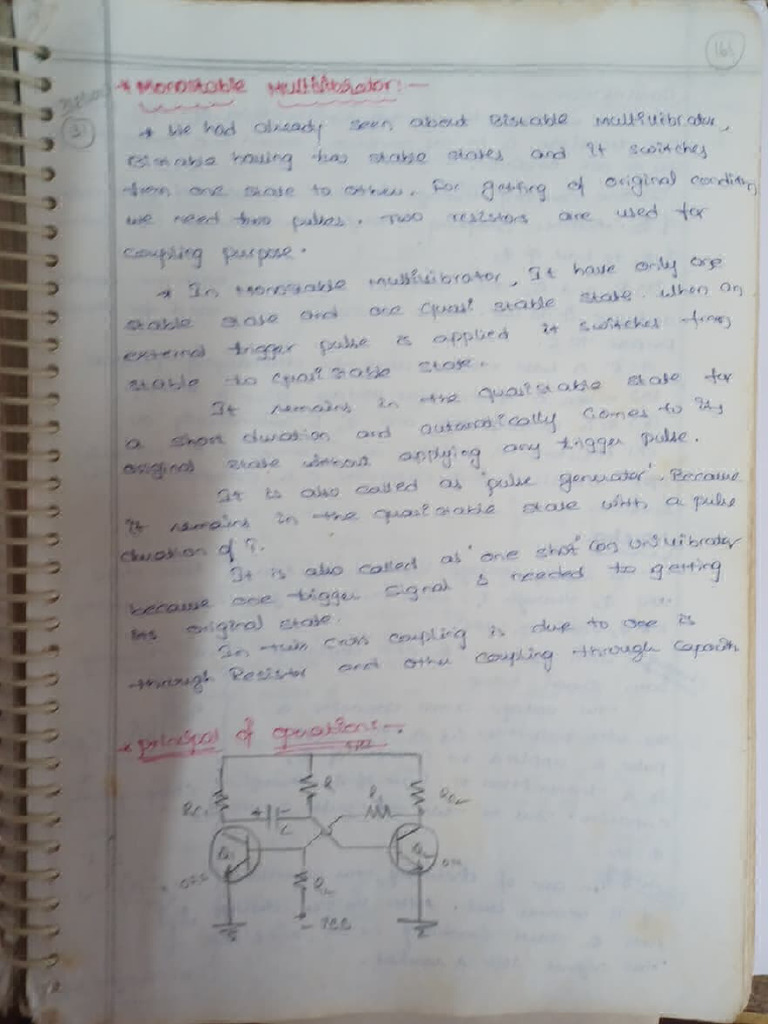 161
31
* Monostable Multivibrator:-
* We had already seen about Bistable Multivibrator,
Bistable having two stable states and it switches
from one state to other. For getting of original condition
we need two pulses. Two resistors are used for
coupling purpose.
* In Monostable Multivibrator, It have only one
stable state and one quasi stable state. When an
external trigger pulse is applied it switches from
stable to quasi stable state.
It remains in the quasistable state for
a short duration and automatically comes to its
original state without applying any trigger pulse.
It is also called as 'pulse generator'. Because
it remains in the quasistable state with a pulse
duration of T.
It is also called as "one shot" (or) univibrator
because one trigger signal is needed to getting
its original state.
In this cross coupling is due to one is
through Resistor and other coupling through Capacitor
* principal of operations:-
+VCC
RC1
R
R1
RC2
+
-
C
Q1
Q2
OFF
ON
R2
-VBB